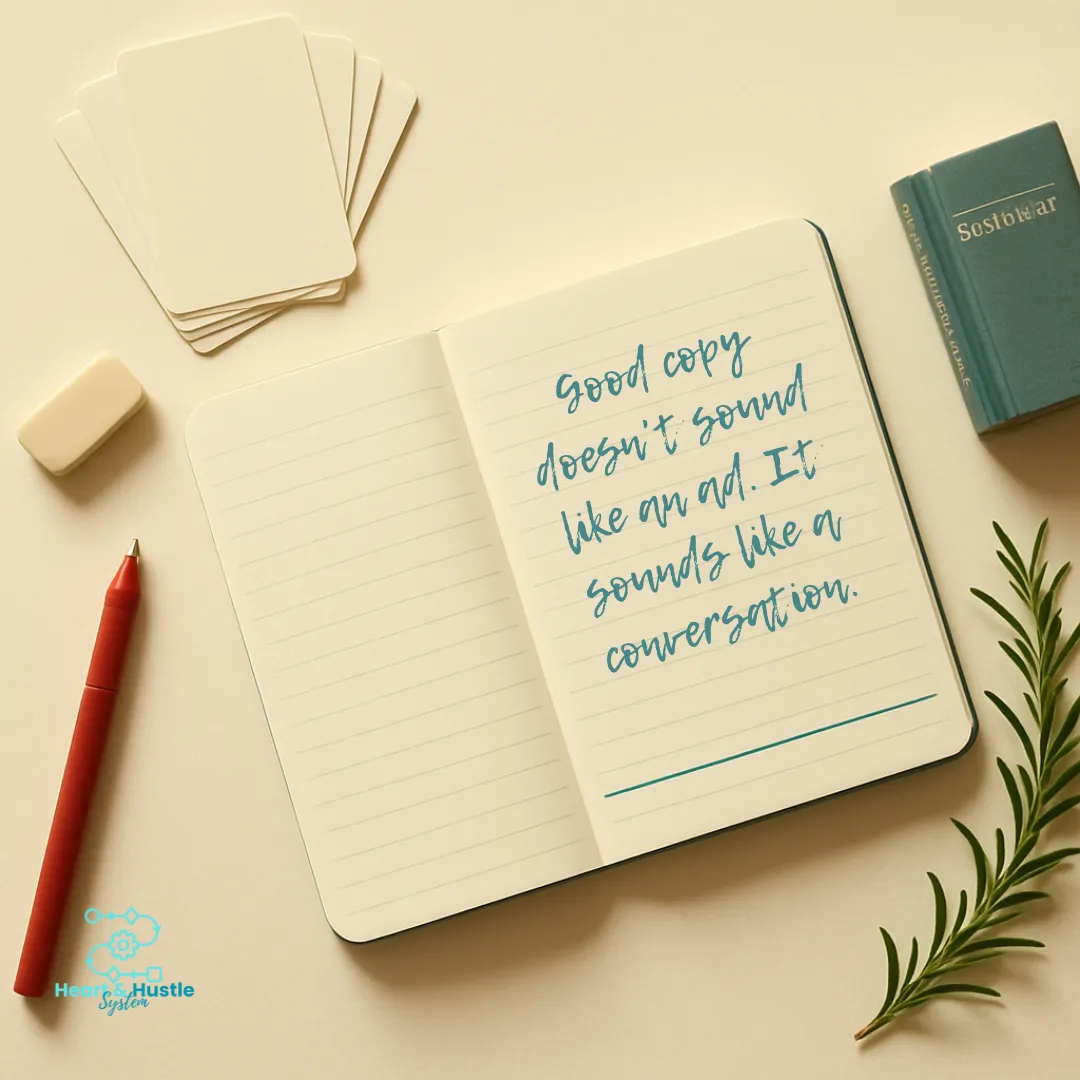 Good copy
doesn't sound
like an ad. It
sounds like a
conversation.
Heart & Hustle
System